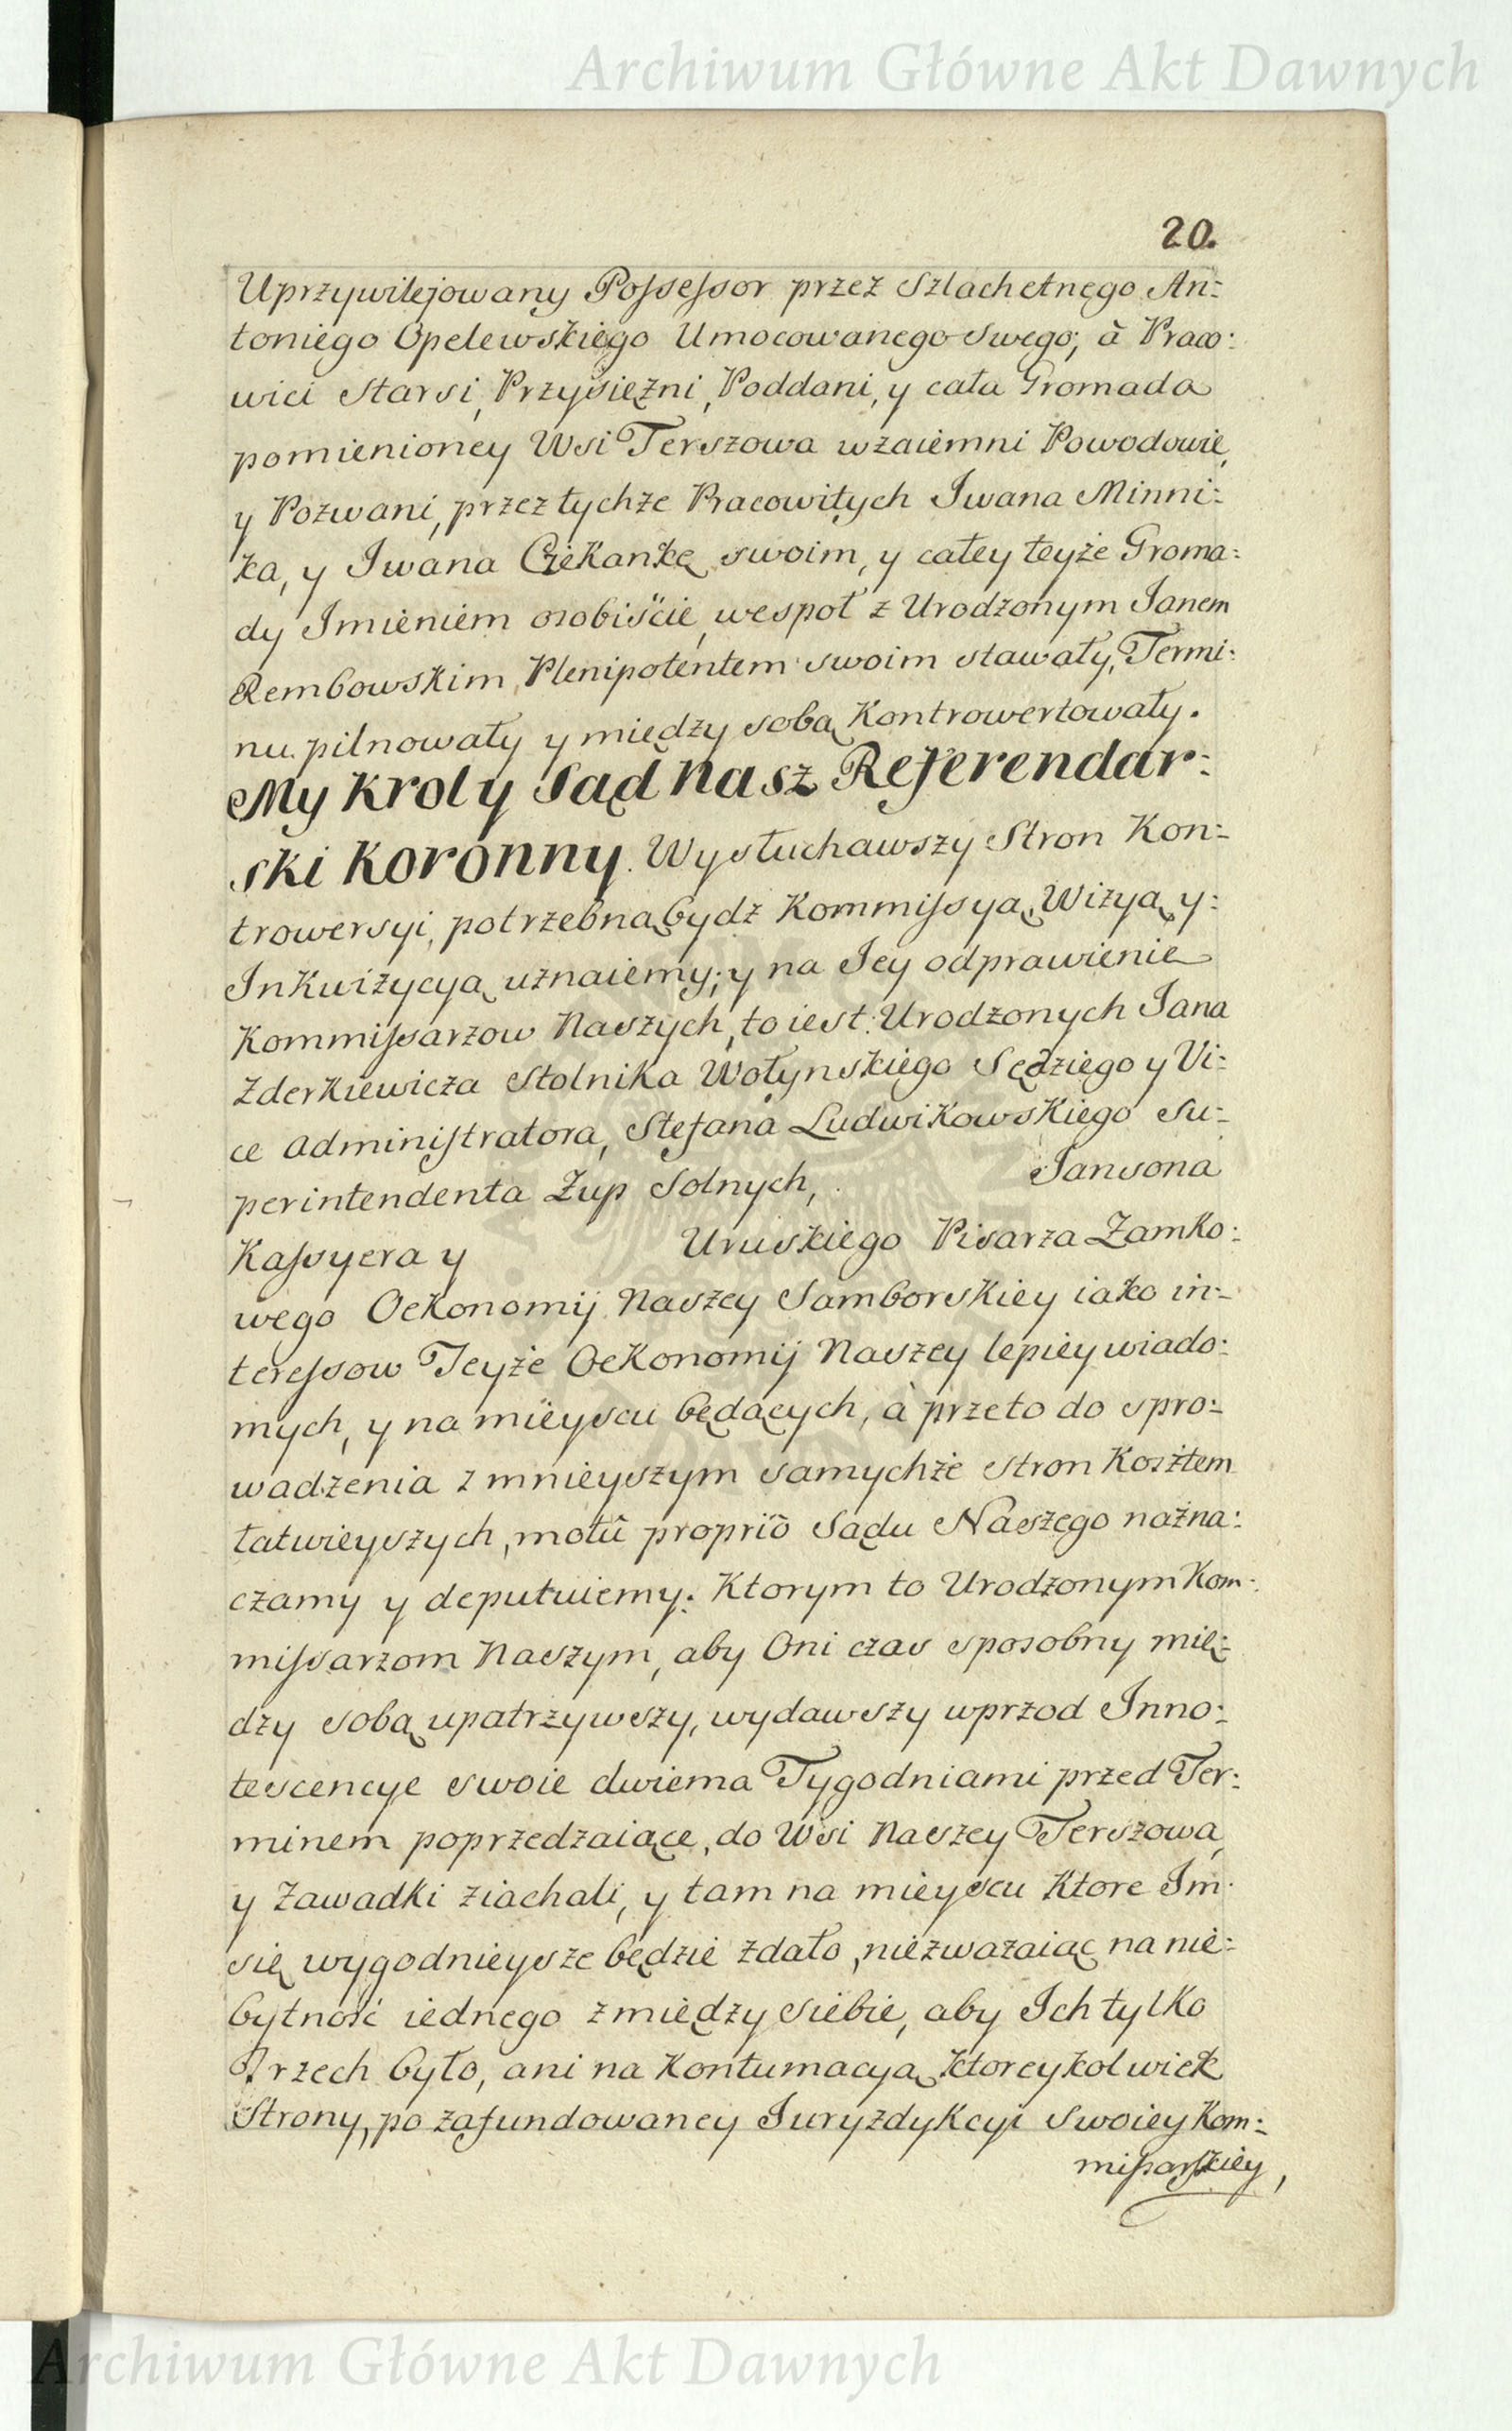 Archiwum Główne Akt Dawnych
20.
Uprzywilejowany Possessor przez Szlachetnego An:
toniego Opelewskiego Umocowanego Swego, à Praco:
wici Starsi, Przysiężni, Poddani, y cała Gromada
pomienioney Wsi Terszowa wzaiemni Powodowie,
y Pozwani, przez tychże Pracowitych Iwana Minni:
ka, y Iwana Czekankę swoim, y całey teyże Groma:
dy Imieniem osobiście, wespoł z Urodzonym Janem
Rembowskim, Plenipotentem swoim stawały, Termi:
nu pilnowały y między sobą Kontrowertowały.
My Krol y Sąd nasz Referendar:
ski Koronny. Wysłuchawszy Stron Kon:
trowersyi, potrzebną bydź Kommissyą, Wizyą, y:
Inkwizycyą uznaiemy; y na Jey odprawienie
Kommissarzow Naszych, to iest: Urodzonych Jana
Zderkiewicza Stolnika Wołynskiego Sędziego y Vi:
ce Administratora, Stefana Ludwikowskiego Su:
perintendenta Żup Solnych, Jansona
Kassyera y Uruskiego Pisarza Zamko:
wego Oekonomij Naszey Samborskiey iako in:
teressow Teyże Oekonomij Naszey lepiey wiado:
mych, y na mieyscu będących, à przeto do spro:
wadzenia z mnieyszym samychże stron Kosztem
łatwieyszych, motû propriô Sądu Naszego nazna:
czamy y deputuiemy: Ktorym to Urodzonym Kom:
missarzom Naszym, aby Oni czas sposobny mię:
dzy sobą upatrzywszy, wydawszy wprzod Inno:
tescencye swoie dwiema Tygodniami przed Ter:
minem poprzedzaiące, do Wsi Naszey Terszowa,
y Zawadki ziachali, y tam na mieyscu Ktore Im
się wygodnieysze będzie zdało, niezważaiąc na nie:
bytność iednego zmiędzy siebie, aby Ich tylko
Trzech było, ani na Kontumacyą Ktoreykolwiek
Strony, po zafundowaney Juryzdykcyi swoiey Kom:
missarskiey,
Archiwum Główne Akt Dawnych